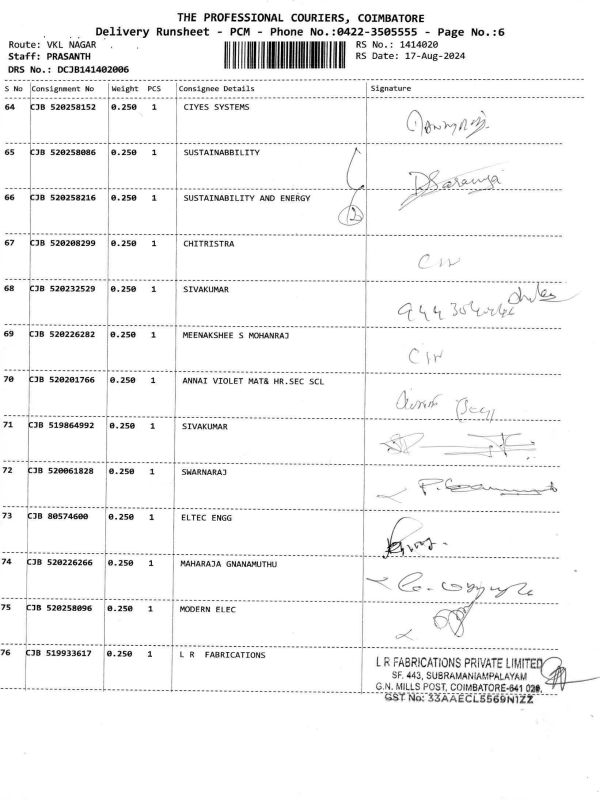 THE PROFESSIONAL COURIERS, COIMBATORE
Delivery Runsheet - PCM - Phone No.:0422-3505555 - Page No.:6
Route: VKL NAGAR
RS No.: 1414020
Staff: PRASANTH
RS Date: 17-Aug-2024
DRS No.: DCJB141402006
S No Consignment No Weight PCS Consignee Details Signature
64 CJB 520258152 0.250 1 CIYES SYSTEMS
65 CJB 520258086 0.250 1 SUSTAINABBILITY
66 CJB 520258216 0.250 1 SUSTAINABILITY AND ENERGY
2
67 CJB 520208299 0.250 1 CHITRISTRA
68 CJB 520232529 0.250 1 SIVAKUMAR
69 CJB 520226282 0.250 1 MEENAKSHEE S MOHANRAJ
70 CJB 520201766 0.250 1 ANNAI VIOLET MAT& HR.SEC SCL
71 CJB 519864992 0.250 1 SIVAKUMAR
72 CJB 520061828 0.250 1 SWARNARAJ
73 CJB 80574600 0.250 1 ELTEC ENGG
74 CJB 520226266 0.250 1 MAHARAJA GNANAMUTHU
75 CJB 520258096 0.250 1 MODERN ELEC
76 CJB 519933617 0.250 1 L R FABRICATIONS
L R FABRICATIONS PRIVATE LIMITED
SF. 443, SUBRAMANIAMPALAYAM
G.N. MILLS POST, COIMBATORE-641 029.
GST No: 33AAECL5569N1ZZ